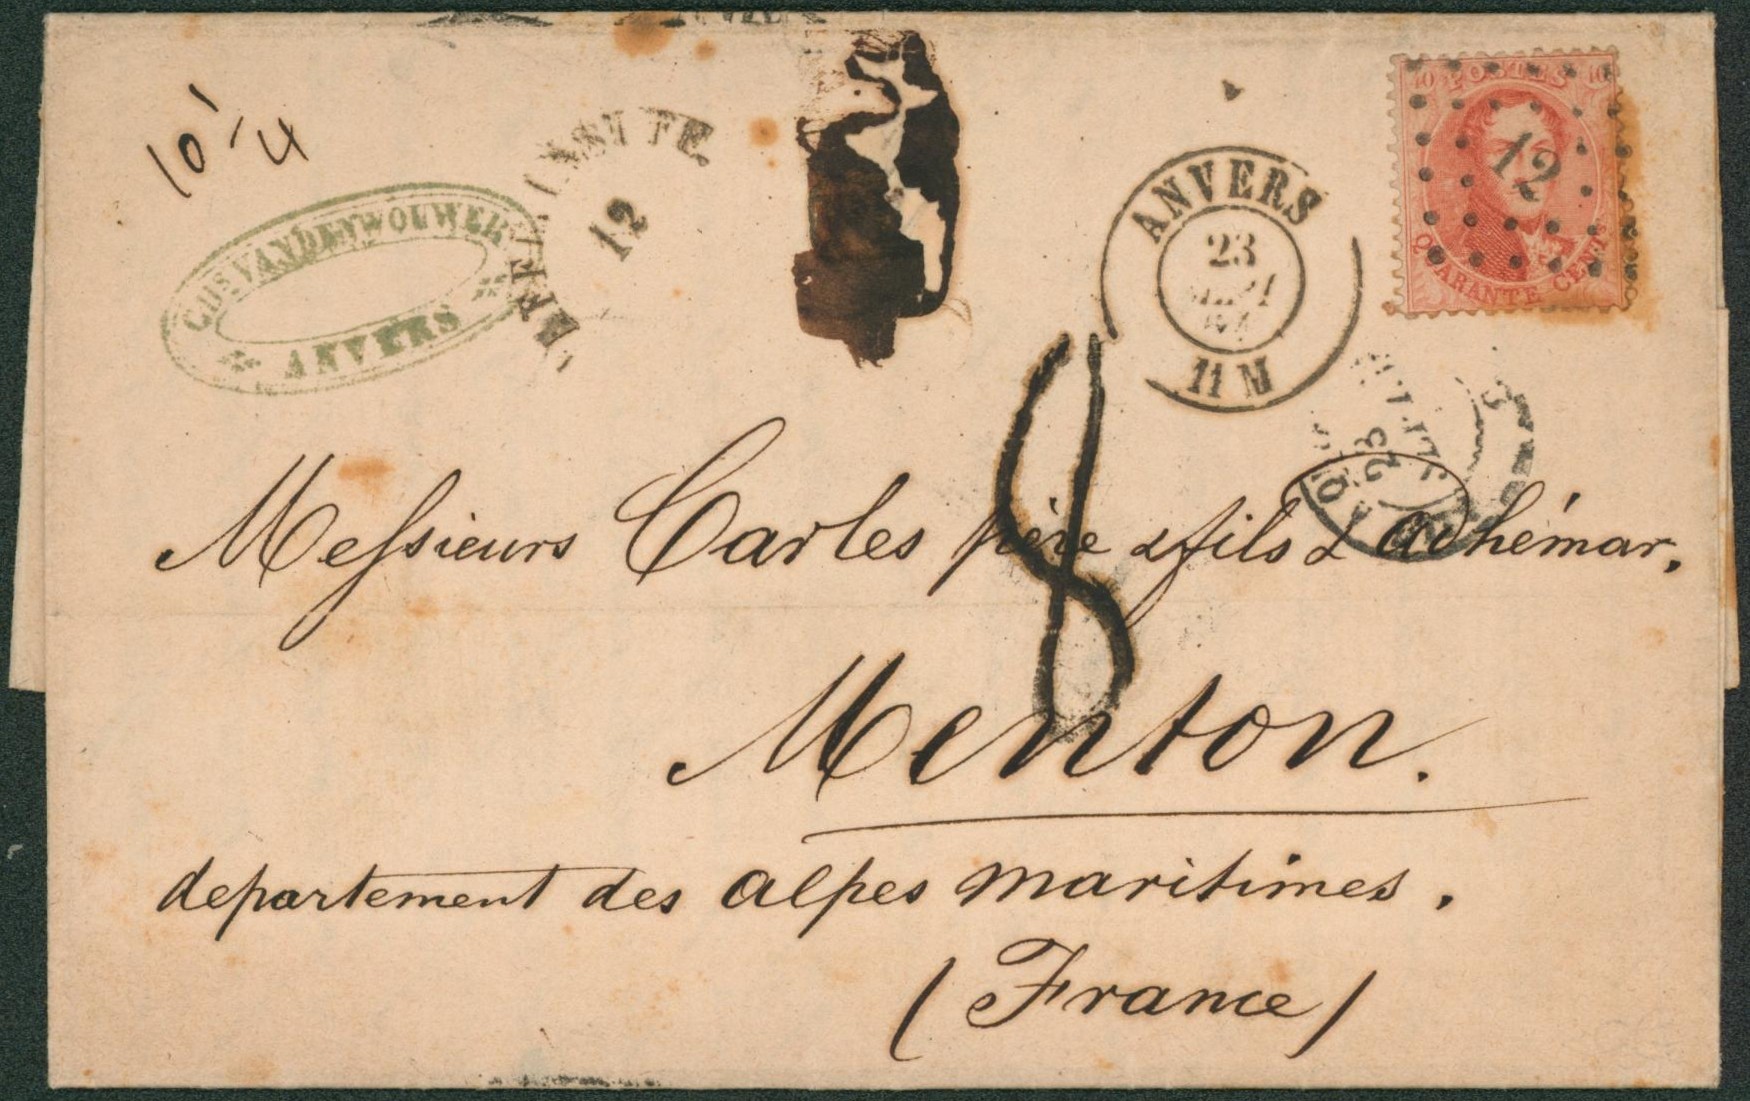 10 1/4
GUS VANDENWOUWER
ANVERS
12
ANVERS
23
11 M
POSTES
40 40
12
QUARANTE CENTS
23
8
Messieurs Carles père & fils & adhémar,
Menton.
departement des alpes maritimes.
(France)